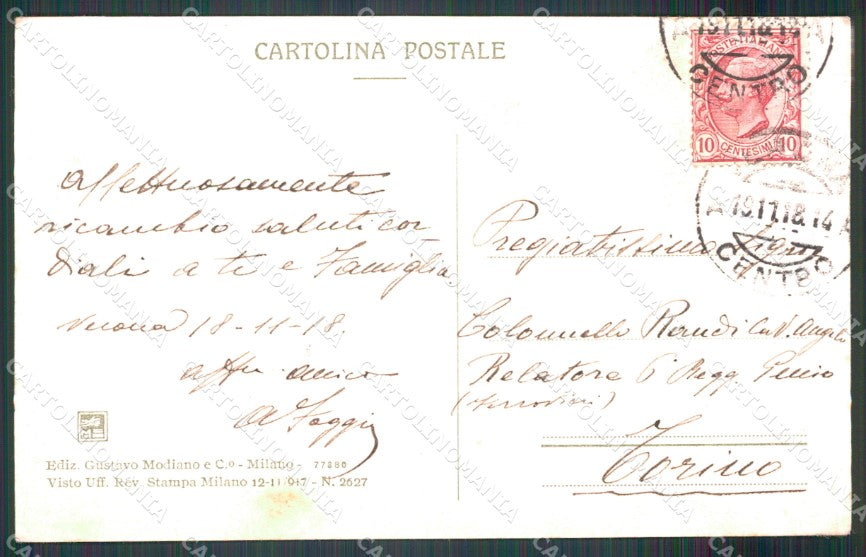 CARTOLINA POSTALE
Affettuosamente
ricambio saluti cor
diali a te e Famiglia
Verona 18-11-18.
affmo amico
Ediz. Gustavo Modiano e C.o - Milano - 77386
Visto Uff. Rev. Stampa Milano 12-11 917 - N. 2627
19.11.18.14
CENTRO
POSTE ITALIANE
10 CENTESIMI 10
A 19.11.18.14
CENTRO
Pregiatissimo Signor
Colonnello Randi Cav. Angelo
Relatore 6° Regg Genio
(ferrovieri)
Torino
CARTOLINOMANIA